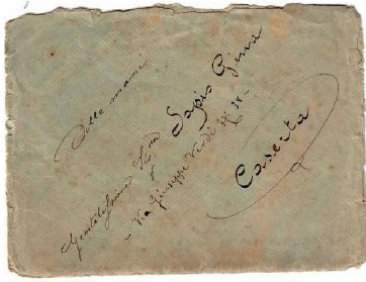 Delle mani
Gentilissima Sig.na Sapio Gina
- Via Giuseppe Verdi N° 38 -
Caserta